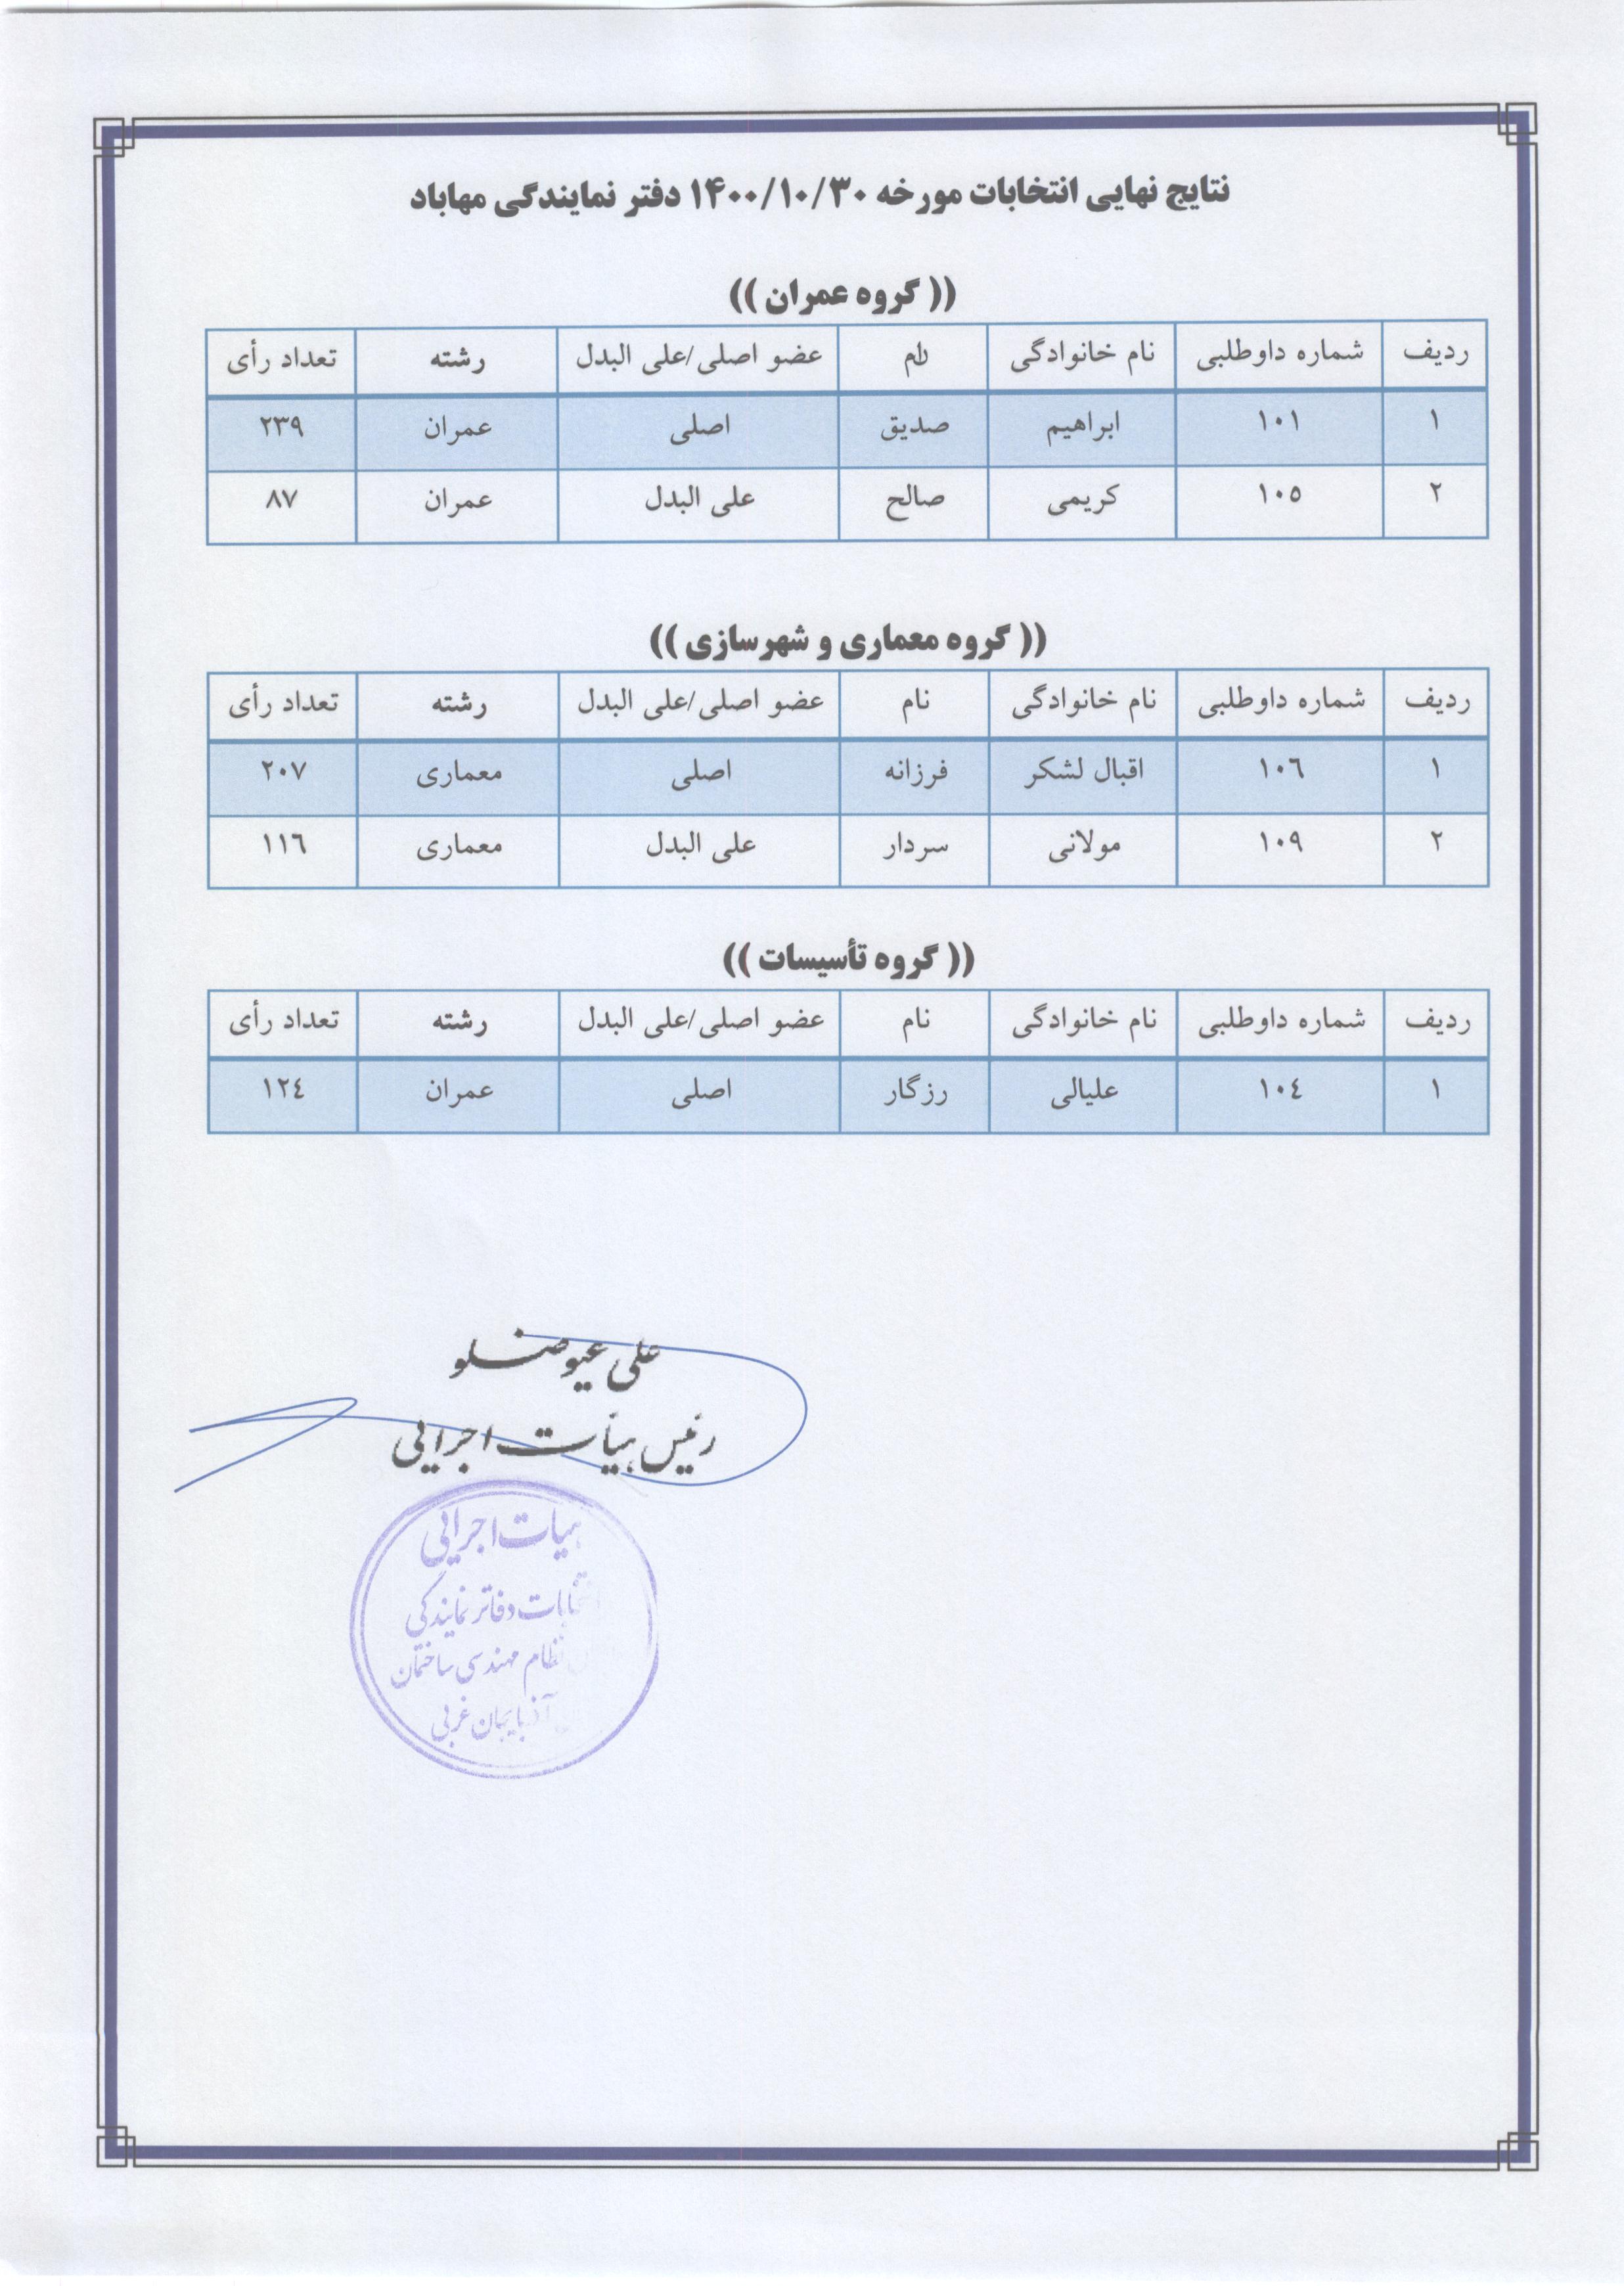 نتایج نهایی انتخابات مورخه ۱۴۰۰/۱۰/۳۰ دفتر نمایندگی مهاباد
(( گروه عمران ))
ردیف شماره داوطلبی نام خانوادگی نام عضو اصلی/علی البدل رشته تعداد رأی
۱ ۱۰۱ ابراهیم صدیق اصلی عمران ۲۳۹
۲ ۱۰۵ کریمی صالح علی البدل عمران ۸۷
(( گروه معماری و شهرسازی ))
ردیف شماره داوطلبی نام خانوادگی نام عضو اصلی/علی البدل رشته تعداد رأی
۱ ۱۰٦ اقبال لشکر فرزانه اصلی معماری ۲۰۷
۲ ۱۰۹ مولانی سردار علی البدل معماری ۱۱٦
(( گروه تأسیسات ))
ردیف شماره داوطلبی نام خانوادگی نام عضو اصلی/علی البدل رشته تعداد رأی
۱ ۱۰٤ علیالی رزگار اصلی عمران ۱۲٤
علی عیوضلو
رئیس هیأت اجرایی
هیات اجرایی
انتخابات دفاتر نمایندگی
نظام مهندسی ساختمان
آذربایجان غربی